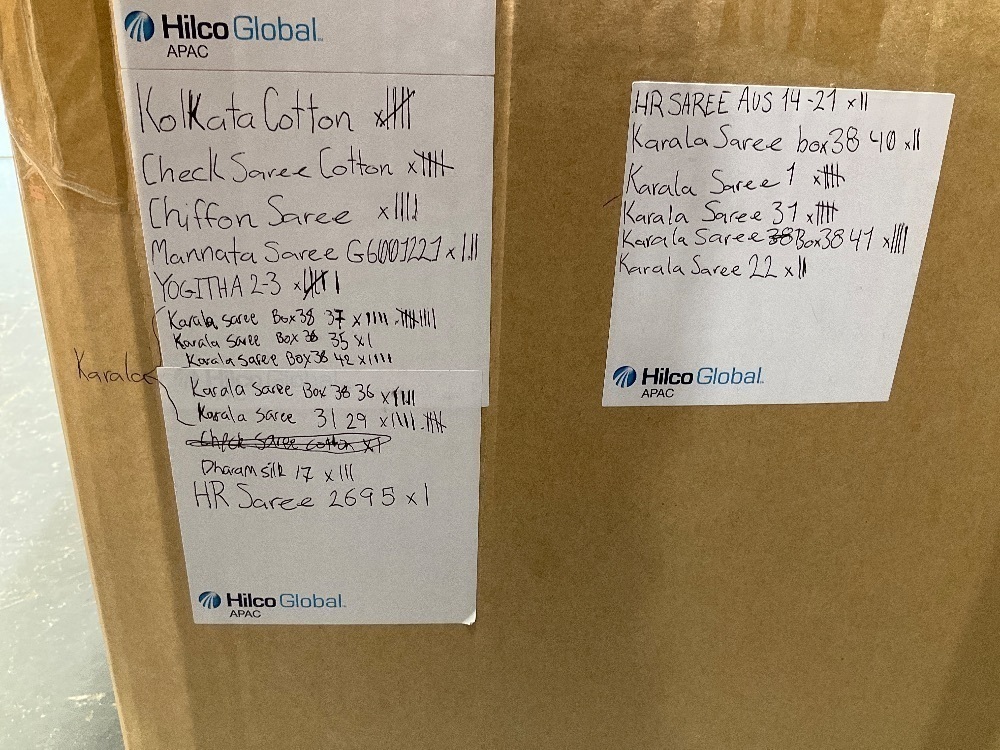 Hilco Global
APAC
Kolkata Cotton x||||
Check Saree Cotton x||||
Chiffon Saree x||||
Mannata Saree G6001221 x|.||
YOGITHA 2-3 x|||| |
Karala saree Box38 37 x|||| ||||||||
Karala Saree Box 38 35 x|
Karala Saree Box38 42 x||||
Karala
Karala Saree Box 38 36 x||||
Karala Saree 31 29 x|||| ||||
Check Saree Cotton x1
Dharam silk 17 x|||
HR Saree 2695 x|
Hilco Global
APAC
HR SAREE AUS 14-21 x||
Karala Saree box38 40 x||
Karala Saree 1 x||||
Karala Saree 31 x||||
Karala Saree 38 Box38 41 x||||
Karala Saree 22 x||
Hilco Global
APAC